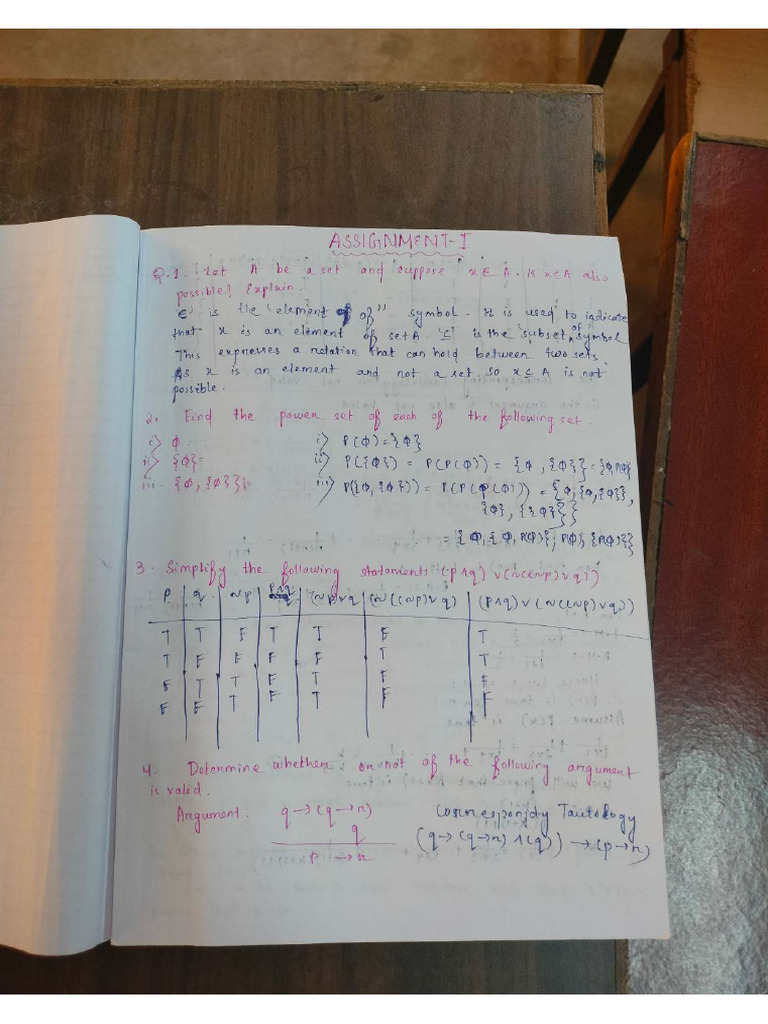 ASSIGNMENT-I
Q.1. Let A be a set and suppose "x"∈ A. Is x⊆A also
possible? Explain.
'∈' is the 'element of" symbol. It is used to indicate
that x is an element of set A. '⊆' is the 'subset of symbol
This expresses a relation that can hold between two sets
As x is an element and not a set. So x⊆A is not
possible.
2. Find the power set of each of the following set.
i> ϕ i> P(ϕ)={ϕ}
ii> {ϕ}= ii> P({ϕ}) = P(P(ϕ)) = {ϕ, {ϕ}} = {ϕ, P(ϕ)}
iii. {ϕ, {ϕ}} iii> P({ϕ, {ϕ}}) = P(P(P(ϕ))) = {ϕ, {ϕ, {ϕ}},
{ϕ}, {{ϕ}}}
= {ϕ, {ϕ, P(ϕ)}, P(ϕ), {P(ϕ)}}
3. Simplify the following statement: (p∧q) ∨(~((~p)∨q))
P q ~p p∧q (~p∨q (~((~p)∨q) (p∧q)∨(~((~p)∨q))
T T F T T F T
T F F F F T T
F T T F T F F
F F T F T F F
4. Determine whether or not of the following argument
is valed.
Argument: q→(q→r) Correspondy Tautology
q (q→(q→r)∧(q))→(p→r)
p →r